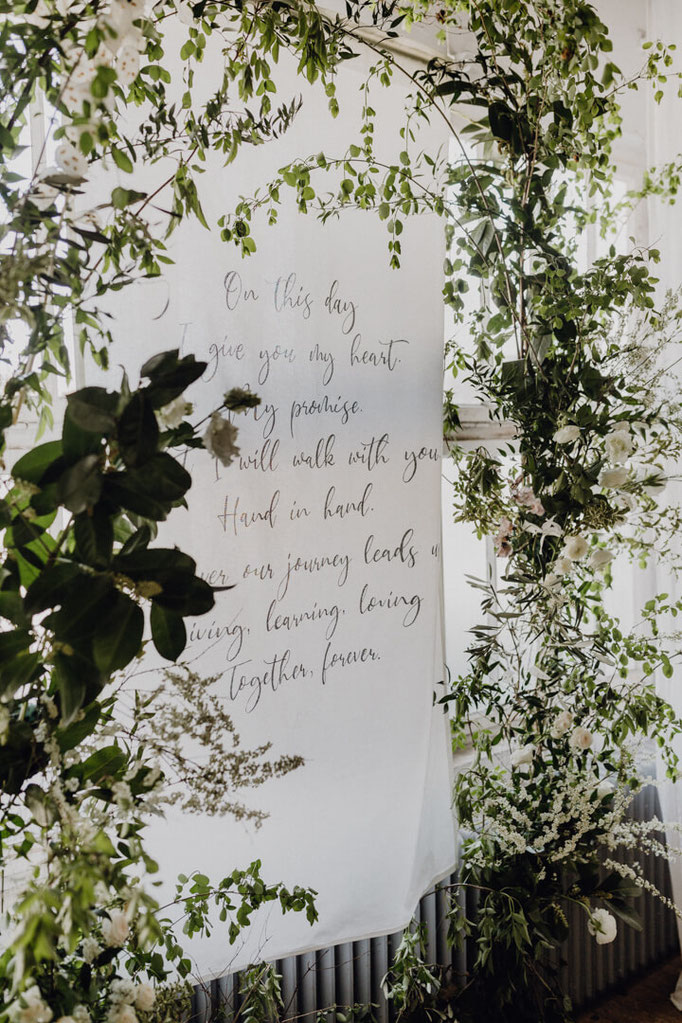 On this day
I give you my heart.
My promise.
I will walk with you
Hand in hand.
our journey leads
learning, loving
Together, forever.